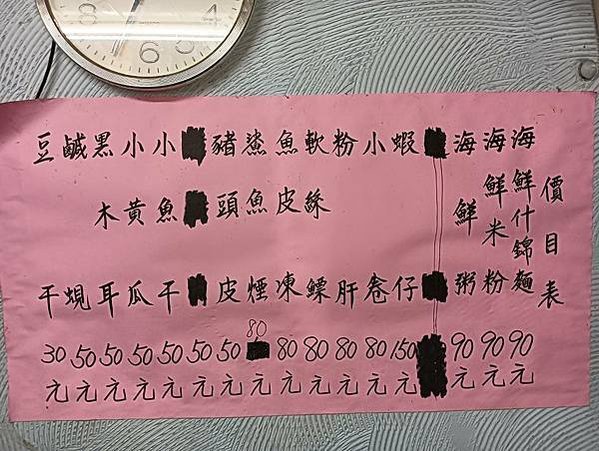 價目表
海鮮什錦麵90元
海鮮米粉90元
海鮮粥90元
蝦仔150元
小卷80元
粉肝80元
軟絲鰾80元
魚皮凍80元
鯊魚煙80元
豬頭皮50元
50元
小魚干50元
小黃瓜50元
黑木耳50元
鹹蜆50元
豆干30元